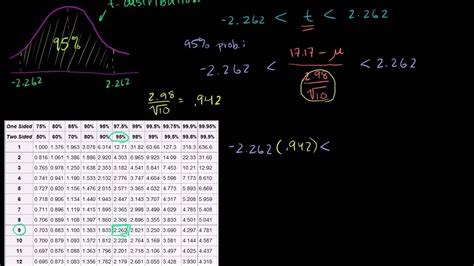 t-distribution
95%
-2.262
2.262
-2.262 < t < 2.262
95% prob:
-2.262 < 17.17 - μ < 2.262
2.98
√10
2.98 = .942
√10
-2.262 (.942) <
One Sided 75% 80% 85% 90% 95% 97.5% 99% 99.5% 99.75% 99.9% 99.95%
Two Sided 50% 60% 70% 80% 90% 95% 98% 99% 99.5% 99.8% 99.9%
1 1.000 1.376 1.963 3.078 6.314 12.71 31.82 63.66 127.3 318.3 636.6
2 0.816 1.061 1.386 1.886 2.920 4.303 6.965 9.925 14.09 22.33 31.60
3 0.765 0.978 1.250 1.638 2.353 3.182 4.541 5.841 7.453 10.21 12.92
4 0.741 0.941 1.190 1.533 2.132 2.776 3.747 4.604 5.598 7.173 8.610
5 0.727 0.920 1.156 1.476 2.015 2.571 3.365 4.032 4.773 5.893 6.869
6 0.718 0.906 1.134 1.440 1.943 2.447 3.143 3.707 4.317 5.208 5.959
7 0.711 0.896 1.119 1.415 1.895 2.365 2.998 3.499 4.029 4.785 5.408
8 0.706 0.889 1.108 1.397 1.860 2.306 2.896 3.355 3.833 4.501 5.041
9 0.703 0.883 1.100 1.383 1.833 2.262 2.821 3.250 3.690 4.297 4.781
10 0.700 0.879 1.093 1.372 1.812 2.228 2.764 3.169 3.581 4.144 4.587
11 0.697 0.876 1.088 1.363 1.796 2.201 2.718 3.106 3.497 4.025 4.437
12 0.695 0.873 1.083 1.356 1.782 2.179 2.681 3.055 3.428 3.930 4.318